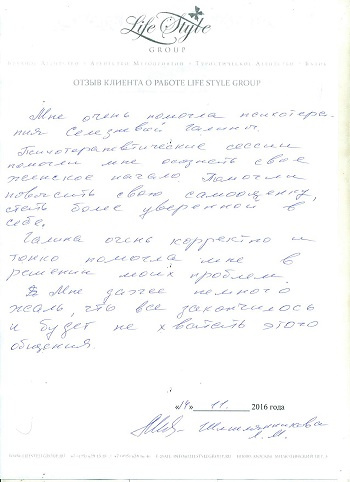 Life Style
GROUP
ОТЗЫВ КЛИЕНТА О РАБОТЕ LIFE STYLE GROUP
Мне очень помогла психотера-
пия Селезневой Галины.
Психотерапевтические сессии
помогли мне осознать свое
женское начало. Помогли
повысить свою самооценку,
стать более уверенной в
себе.
Галина очень корректно и
тонко помогла мне в
решении моих проблем
Мне даже немного
жаль, что все закончилось
и будет не хватать этого
общения.
«14» 11. 2016 года